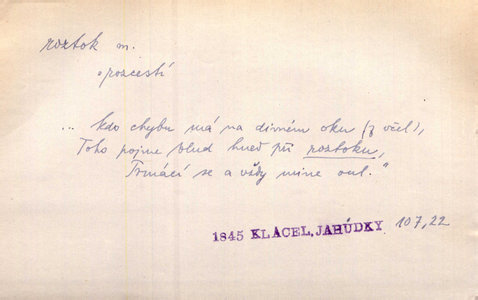 roztok m.
rozcestí
... kdo chybu má na divném oku (z včel),
Toho pojme blud hned při roztoku,
Trmácí se a vždy mine oul."
1845 KLÁCEL, JAHŮDKY 107,22